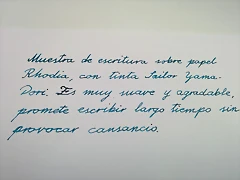 Muestra de escritura sobre papel
Rhodia, con tinta Sailor Yama-
Dori. Es muy suave y agradable,
promete escribir largo tiempo sin
provocar cansancio.